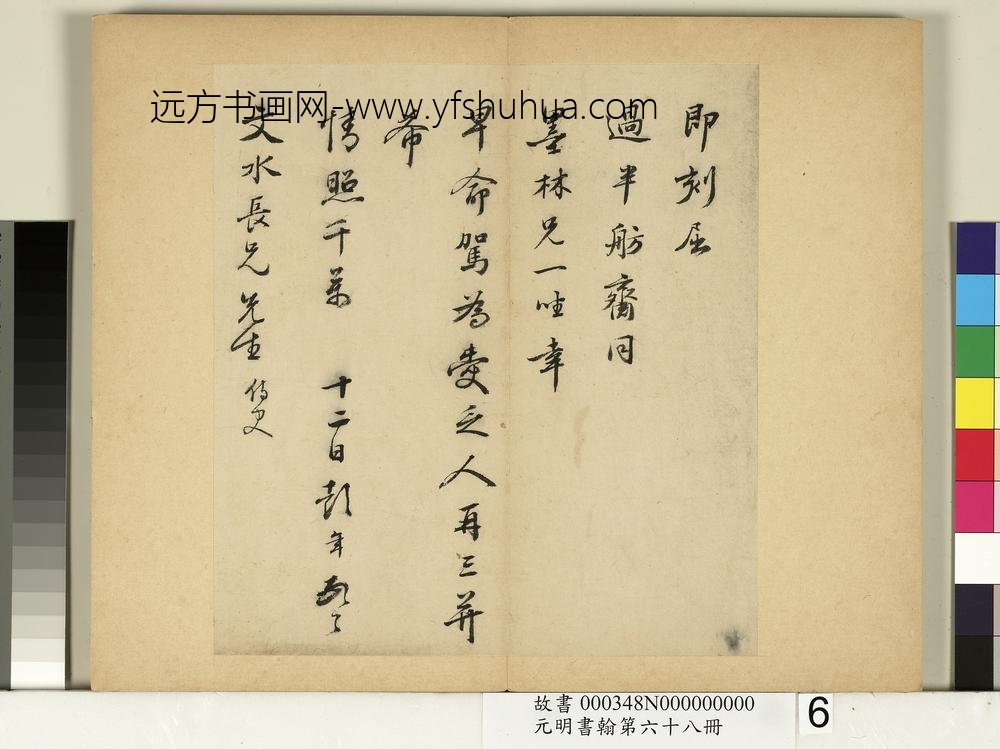 远方书画网-www.yfshuhua.com
即刻屈
過半舫齋同
墨林兄一哇幸
早命駕為愛乏人再三并
希
情照千萬 十二日彭年頓首
文水長兄先生侍史
故書 000348N000000000
元明書翰第六十八冊
6